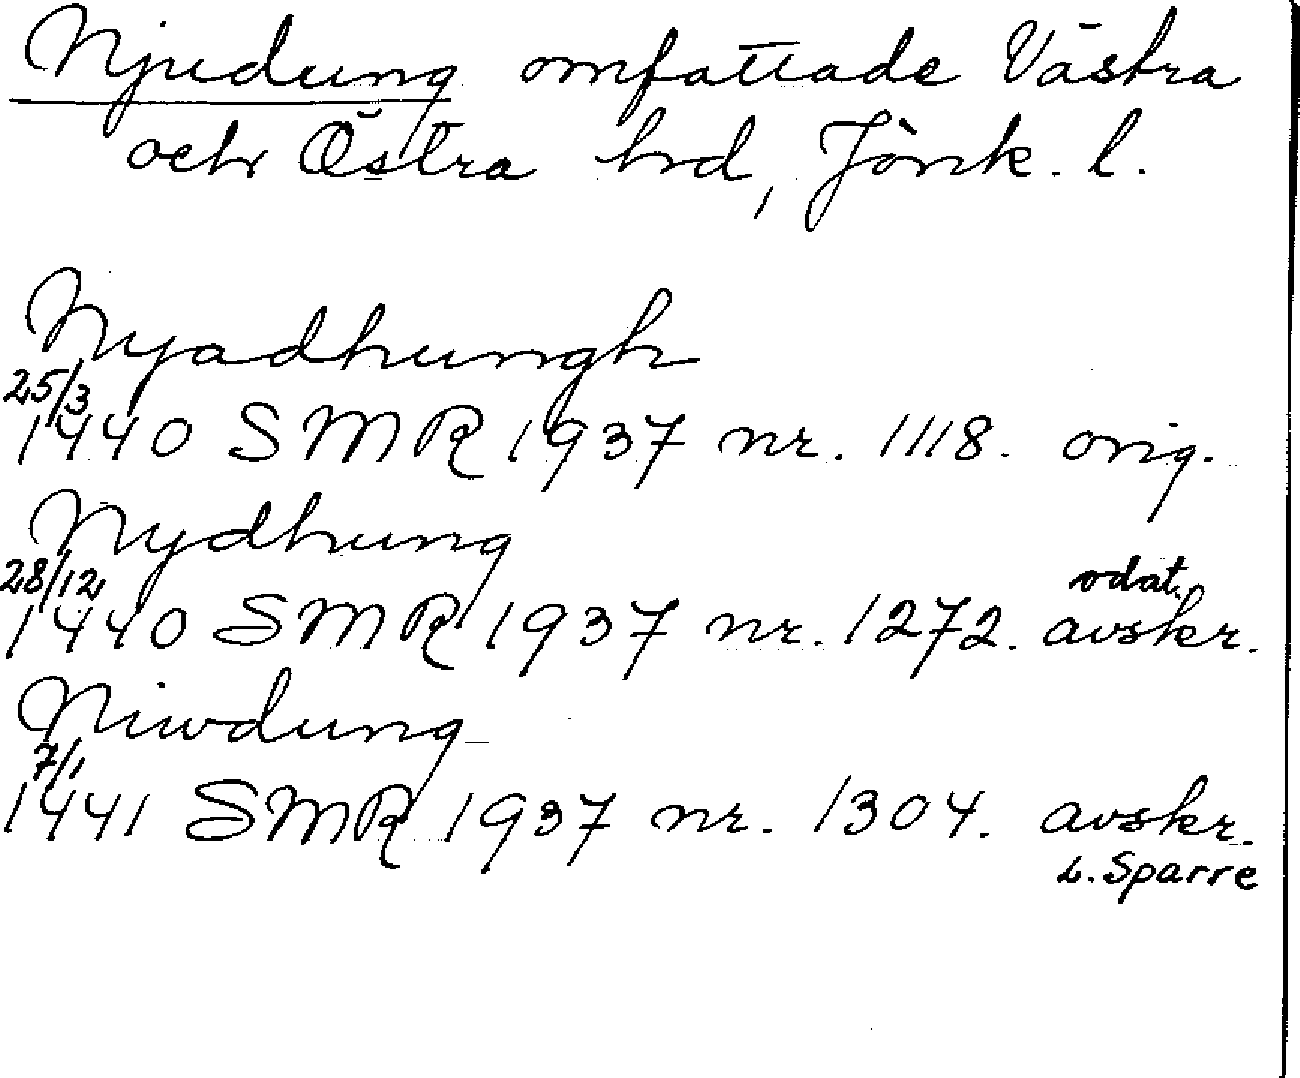 Njudung omfattade Västra
och Östra hrd, Jönk. l.
Nyadhungh
25/3
1440 SMR 1937 nr. 1118. orig.
Nydhung
28/12 odat.
1440 SMR 1937 nr. 1272. avskr.
Niwdung
7/1
1441 SMR 1937 nr. 1304. avskr.
L. Sparre